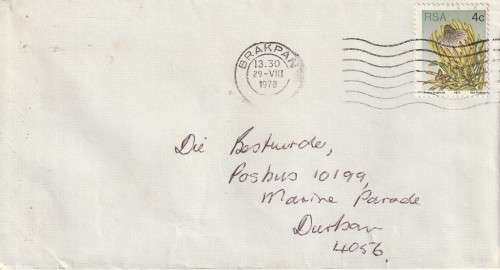 RSA 4c
BRAKPAN
13.30
29-VIII
1978
Die Bestuurder,
Posbus 10199,
Marine Parade
Durban
4056.